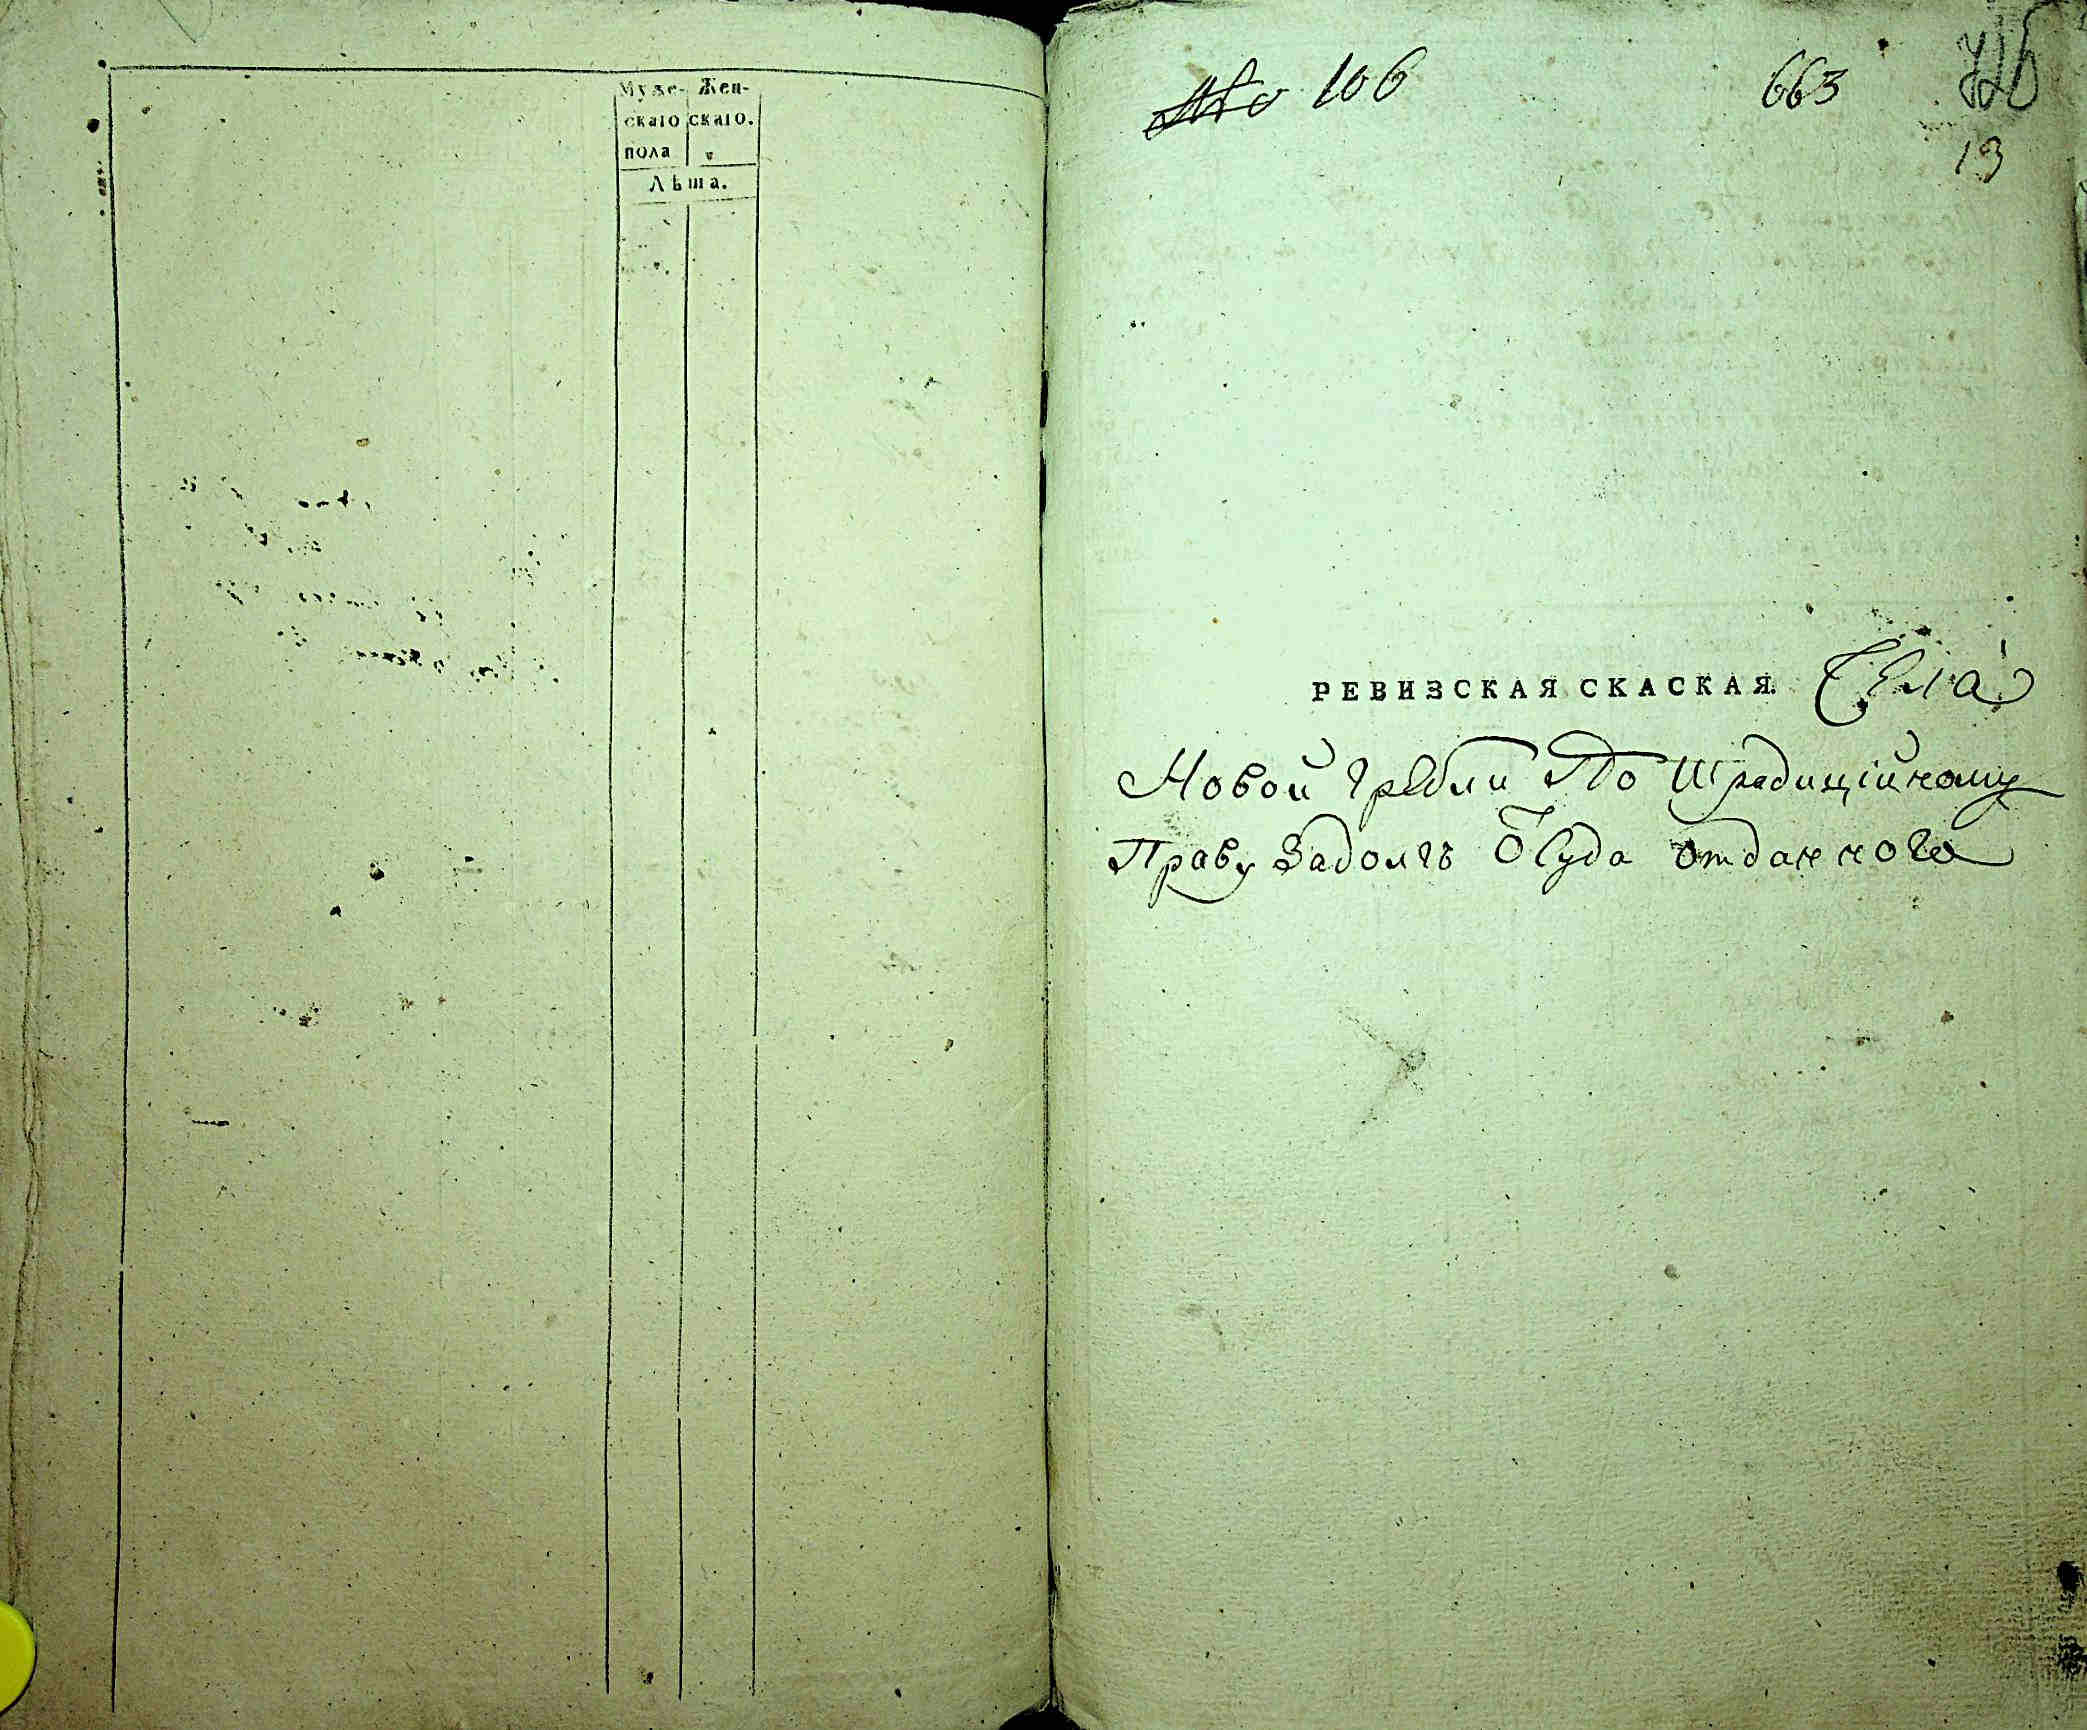 Муже- Жен-
скаго скаго.
пола
Лѣта.
No 106 663
13
РЕВИЗСКАЯ СКАСКАЯ Села
Новой Гребли По традиційному
Праву Задолгъ Отданного